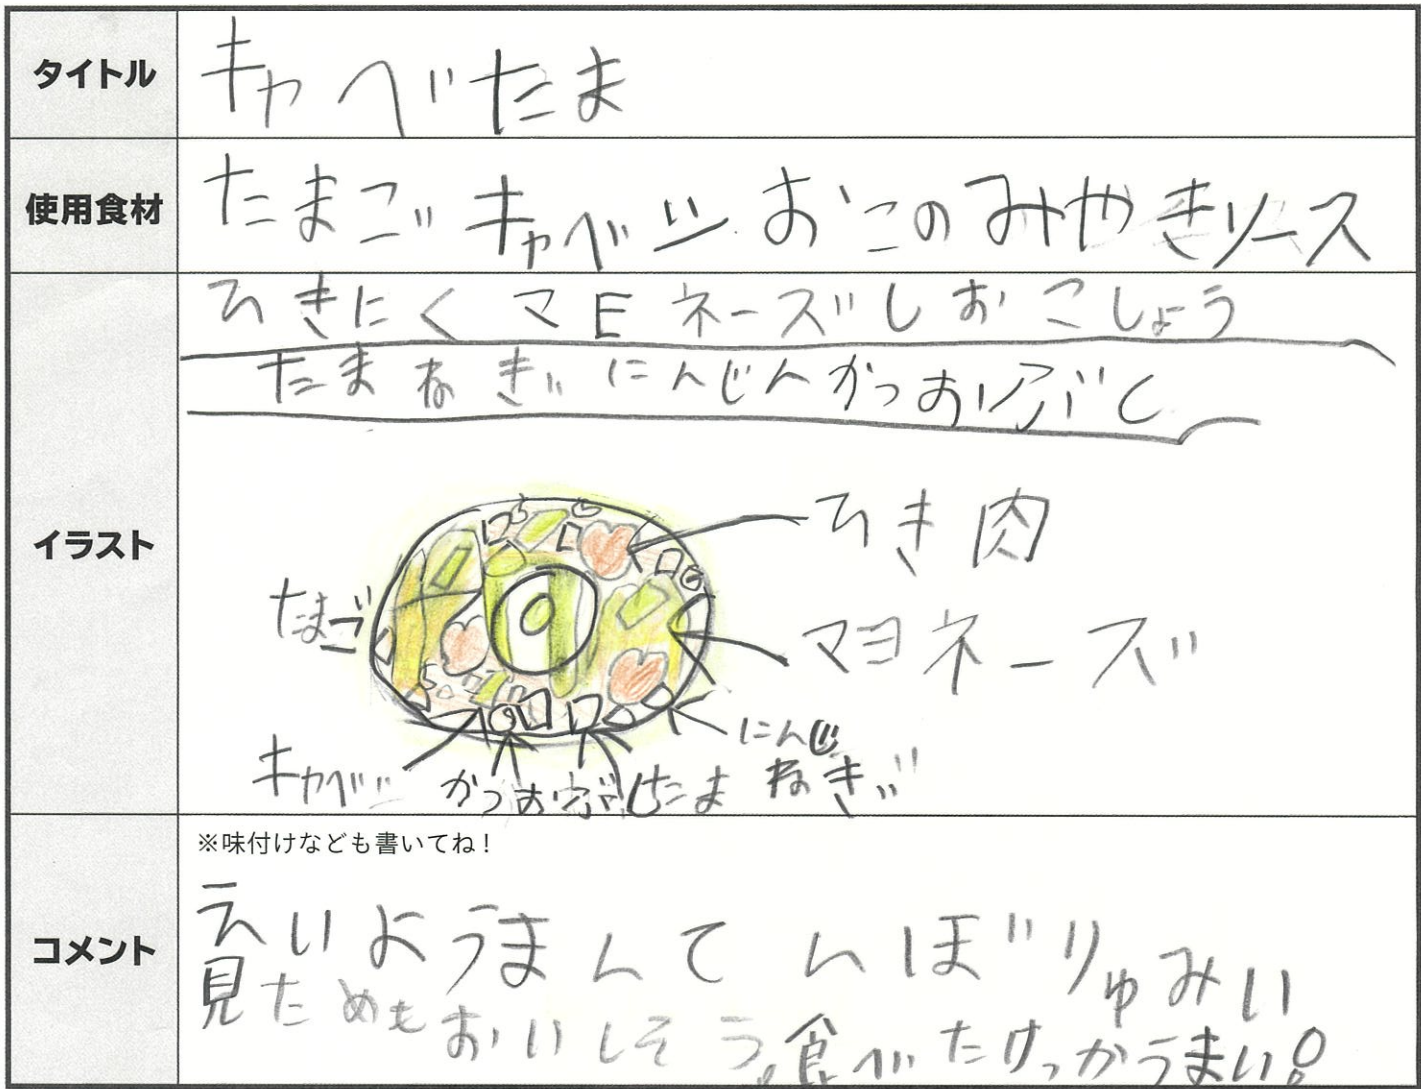 タイトル
キャべたま
使用食材
たまご キャベツ おこのみやきソース
ひきにく マヨネーズ しおこしょう
たまねぎ にんじん かつおぶし
イラスト
ひき肉
たまご
マヨネーズ
にんじ
キャベツ かつおぶし たまねぎ
コメント
※味付けなども書いてね！
えいようまんてんぼりゅみい
見ためもおいしそう。食べたけっかうまい!